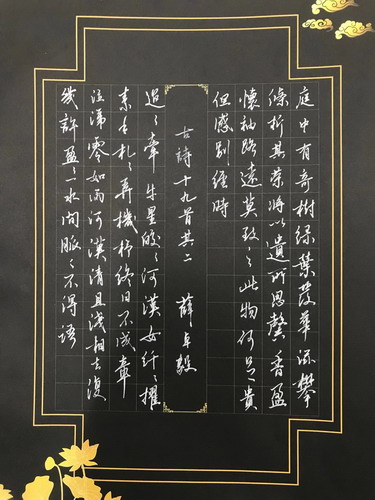 庭中有奇樹綠葉發華滋攀
條折其榮將以遺所思馨香盈
懷袖路遠莫致之此物何足貴
但感別經時
古詩十九首其二 薛卓毅
迢〻牽牛星皎〻河漢女纖〻擢
素手札〻弄機杼終日不成章
泣涕零如雨河漢清且淺相去復
幾許盈〻一水間脈〻不得語